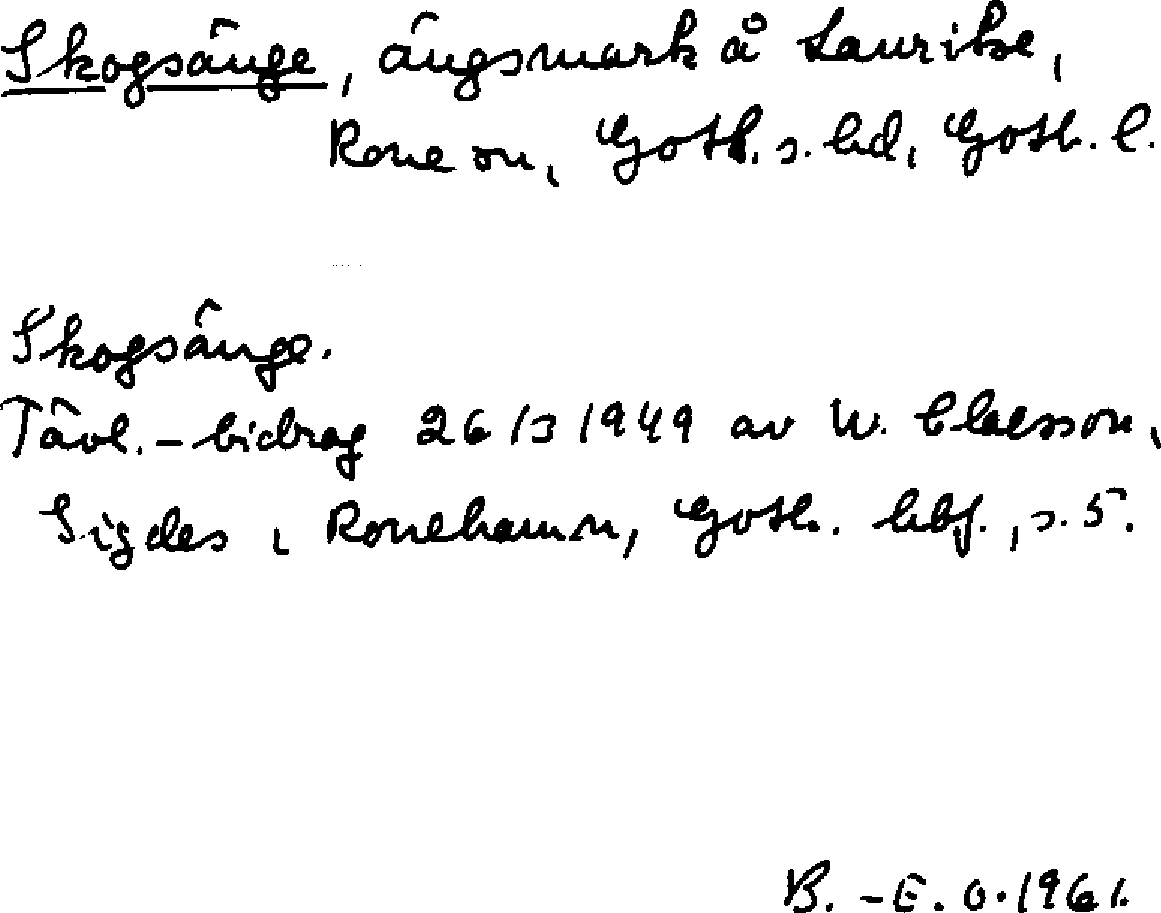 Skogsänge, ängsmark å Laurikse,
Rone sn, Gotl. s. hd, Gotl. l.
Skogsänge.
Tävl.-bidrag 26/3 1949 av W. Claesson,
Sigdes, Ronehamn, Gotl. hbf., s. 5.
B.-E. O. 1961.